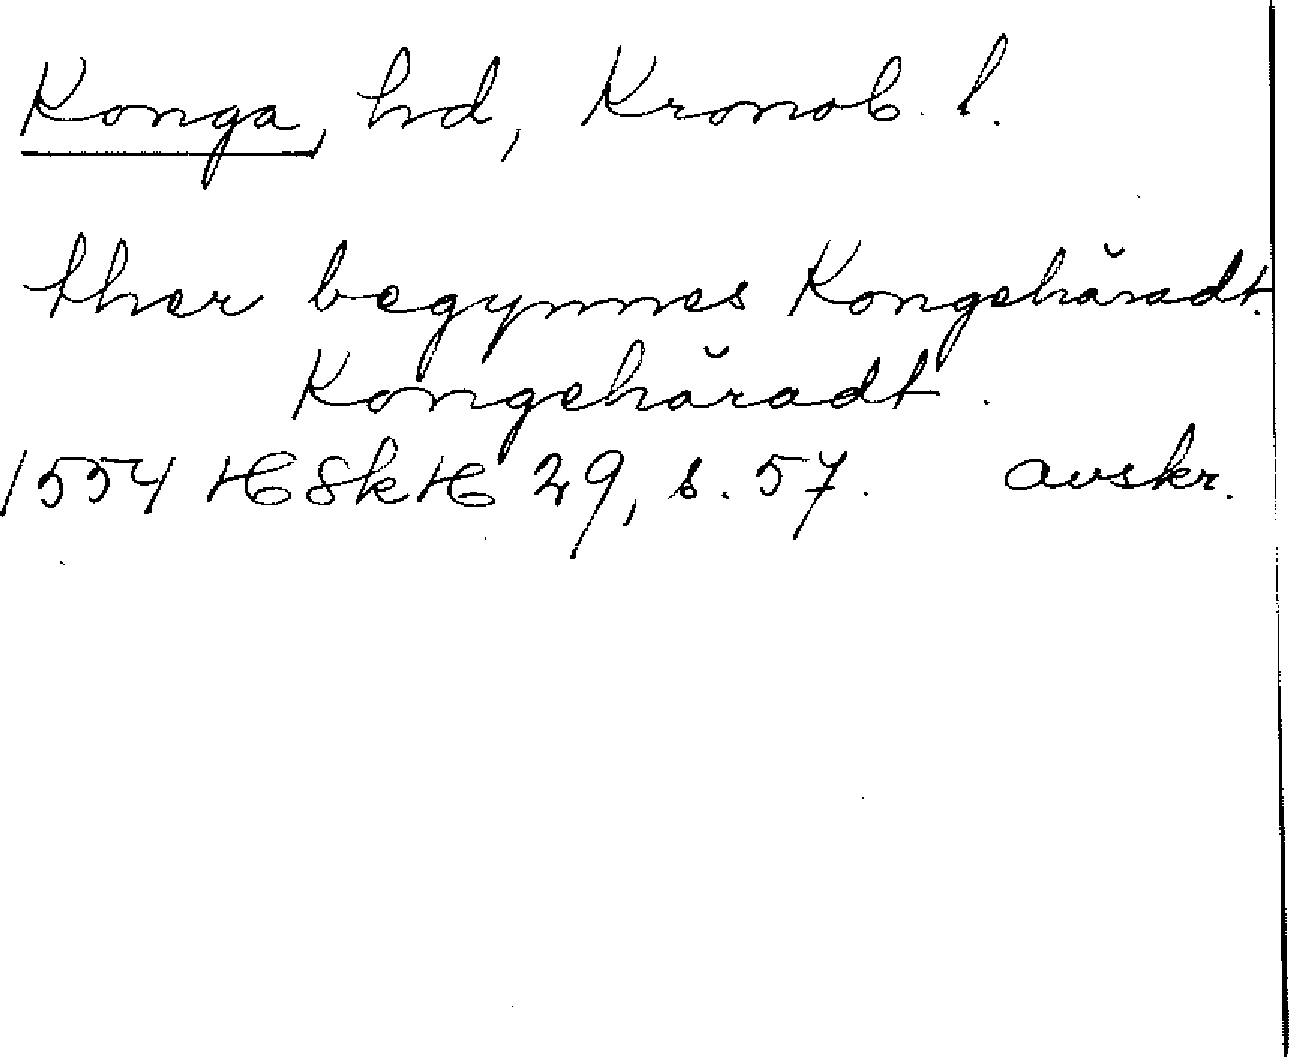 Konga, hd, Kronob. l.
ther begynnes Kongehăradt.
Kongehăradt.
1554 HSkH 29, s. 57. avskr.